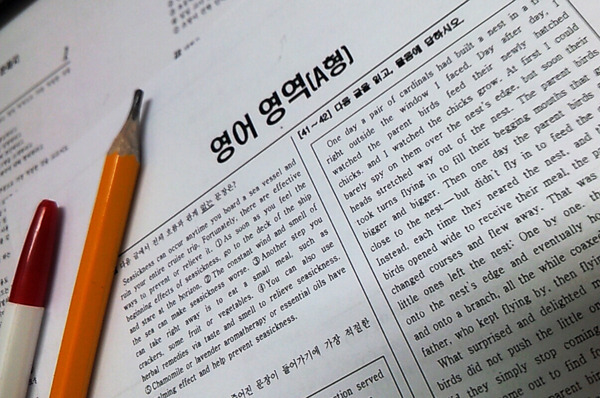 영어 영역(A형)
다음 글에서 전체 흐름과 관계 없는 문장은?
Seasickness can occur anytime you board a sea vessel and
ruin your entire cruise trip. Fortunately, there are effective
ways to prevent or relieve it. ① As soon as you feel the
beginning effects of seasickness, go to the deck of the ship
and stare at the horizon. ② The constant wind and smell of
the sea can make seasickness worse. ③ Another step you
can take right away is to eat a small meal, such as
crackers, some fruit, or vegetables. ④ You can also use
herbal remedies via taste and smell to relieve seasickness.
⑤ Chamomile or lavender aromatherapy or essential oils have
calming effect and help prevent seasickness.
주어진 문장이 들어가기에 가장 적절한
[41~42] 다음 글을 읽고, 물음에 답하시오.
One day a pair of cardinals had built a nest in a
right outside the window I faced. Day after day, I
watched the parent birds feed their newly hatched
chicks, and I watched the chicks grow. At first I could
barely spy them over the nest's edge, but soon their
heads stretched way out of the nest. The parent birds
took turns flying in to fill their begging mouths that
bigger and bigger. Then one day the parent birds
close to the nest—but didn't fly in to feed the
Instead, each time they neared the nest, and
birds opened wide to receive their meal, the
changed courses and flew away. That was
little ones left the nest: One by one, the
onto the nest's edge and eventually
and onto a branch, all the while
father, who kept flying by, then flying
What surprised and delighted
birds did not push the little
they simply stop coming
came out to find